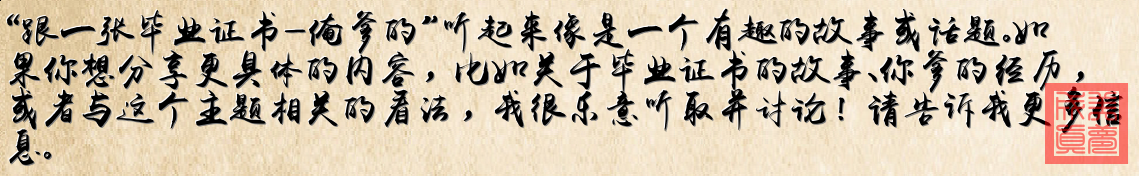 “跟一张毕业证书-俺爹的”听起来像是一个有趣的故事或话题。如
果你想分享更具体的内容，比如关于毕业证书的故事、你爹的经历，
或者与这个主题相关的看法，我很乐意听取并讨论！请告诉我更多信
息。